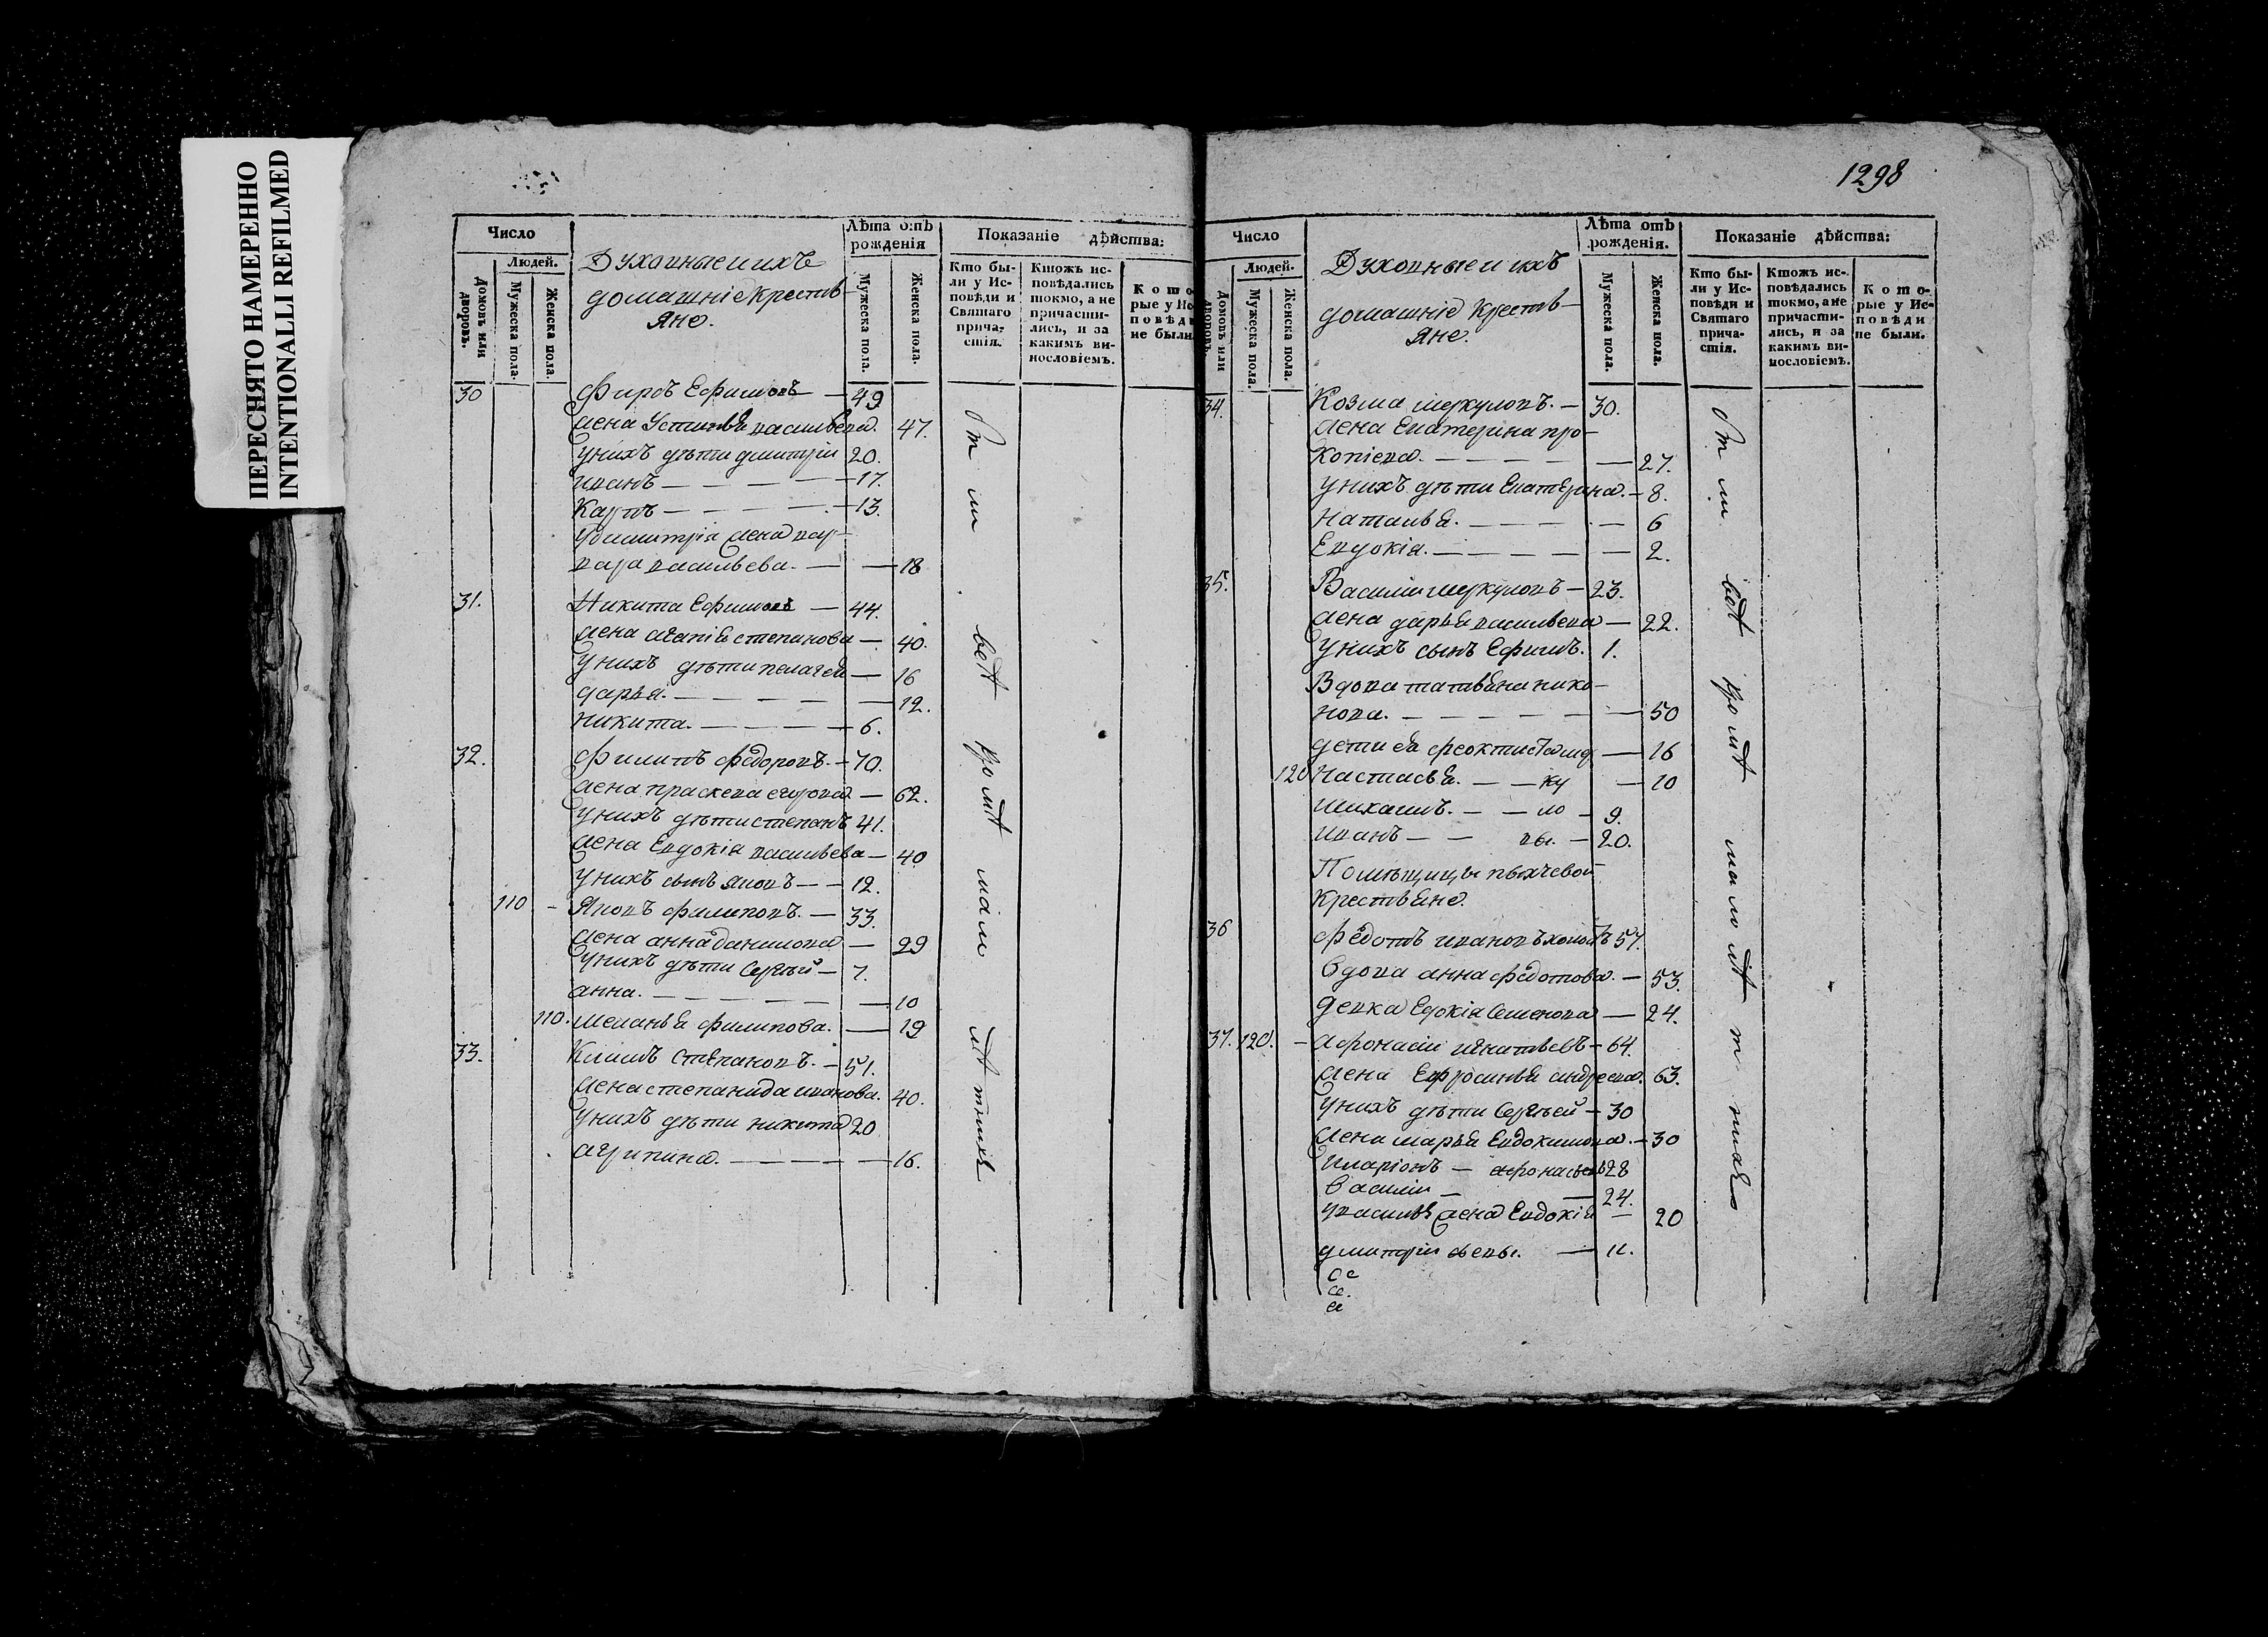 ПЕРЕСНЯТО НАМЕРЕННО
INTENTIONALLI REFILMED
1298
Число
Людей.
Домовъ или дворовъ.
Мужеска пола.
Женска пола.
Духовные и ихъ
домашніе Крестьв-
яне.
Лѣта отъ
рожденія
Мужеска пола.
Женска пола.
Показаніе дѣйства:
Кто бы-
ли у Ис-
повѣди и
Святаго
прича-
стія.
Ктожъ ис-
повѣдались
токмо, а не
причасти-
лись, и за
какимъ ви-
нословіемъ.
Кото
рые у Ис
повѣд
не были
30 Фирсъ Ефимовъ — 49
жена Устинья васильева. 47.
у нихъ дѣти дмитрій 20.
иванъ — 17.
Карпъ — 13.
У дмитрія жена вар-
вара васильева. — 18
31. Никита Ефимовъ — 44.
жена агапія степанова — 40.
У нихъ дѣти пелагея — 16
дарья. — 12.
никита. — 6.
32. Филипъ федоровъ. — 70.
жена праскева егорова — 62.
У нихъ дѣти степанъ 41.
жена Евдокія васильева — 40
У нихъ сынъ яковъ — 12.
110 - Яковъ филиповъ. — 33.
жена анна данилова — 29
У нихъ дѣти Сергѣй — 7.
анна. — 10
110. меланья филипова. — 19
33. Климъ степановъ. — 51.
жена степанида иванова. 40.
У нихъ дѣти никита 20
агрипина. — 16.
Число
Людей.
Домовъ или дворовъ.
Мужеска пола.
Женска пола.
Духовные и ихъ
домашніе Крестьв-
яне.
Лѣта отъ
рожденія.
Мужеска пола.
Женска пола.
Показаніе дѣйства:
Кто бы-
ли у Ис-
повѣди и
Святаго
прича-
стія.
Ктожъ ис-
повѣдались
токмо, а не
причасти-
лись, и за
какимъ ви-
нословіемъ.
Кото-
рые у Ис-
повѣди
не были.
34. Козма меркуловъ. — 30.
жена Екатерина про-
копіева. — 27.
У нихъ дѣти Екатерина. — 8.
Наталья. — 6
Евдокія. — 2.
35. Василій меркуловъ — 23.
жена дарья васильева — 22.
У нихъ сынъ Ефимъ. 1.
Вдова татьяна нико-
нова. — 50
дети ея феоктиста мер — 16
120 Настасья. — ку — 10
михаилъ. — ло — 9.
иванъ — вы. — 20.
Помѣщицы пычевой
Крестьяне.
36 Федотъ ивановъ холостъ 57.
Вдова анна федотова. — 53.
девка Едокія Семенова — 24.
37. 120. — афонасій игнатьевъ — 64.
жена Ефросинья андреева. 63.
У нихъ дѣти Сергѣй — 30
жена марья Евдокимова. — 30
Иларіонъ — афонасьевъ 28
Василій — 24.
У василья жена Евдокія — 20
дмитрій — 11.